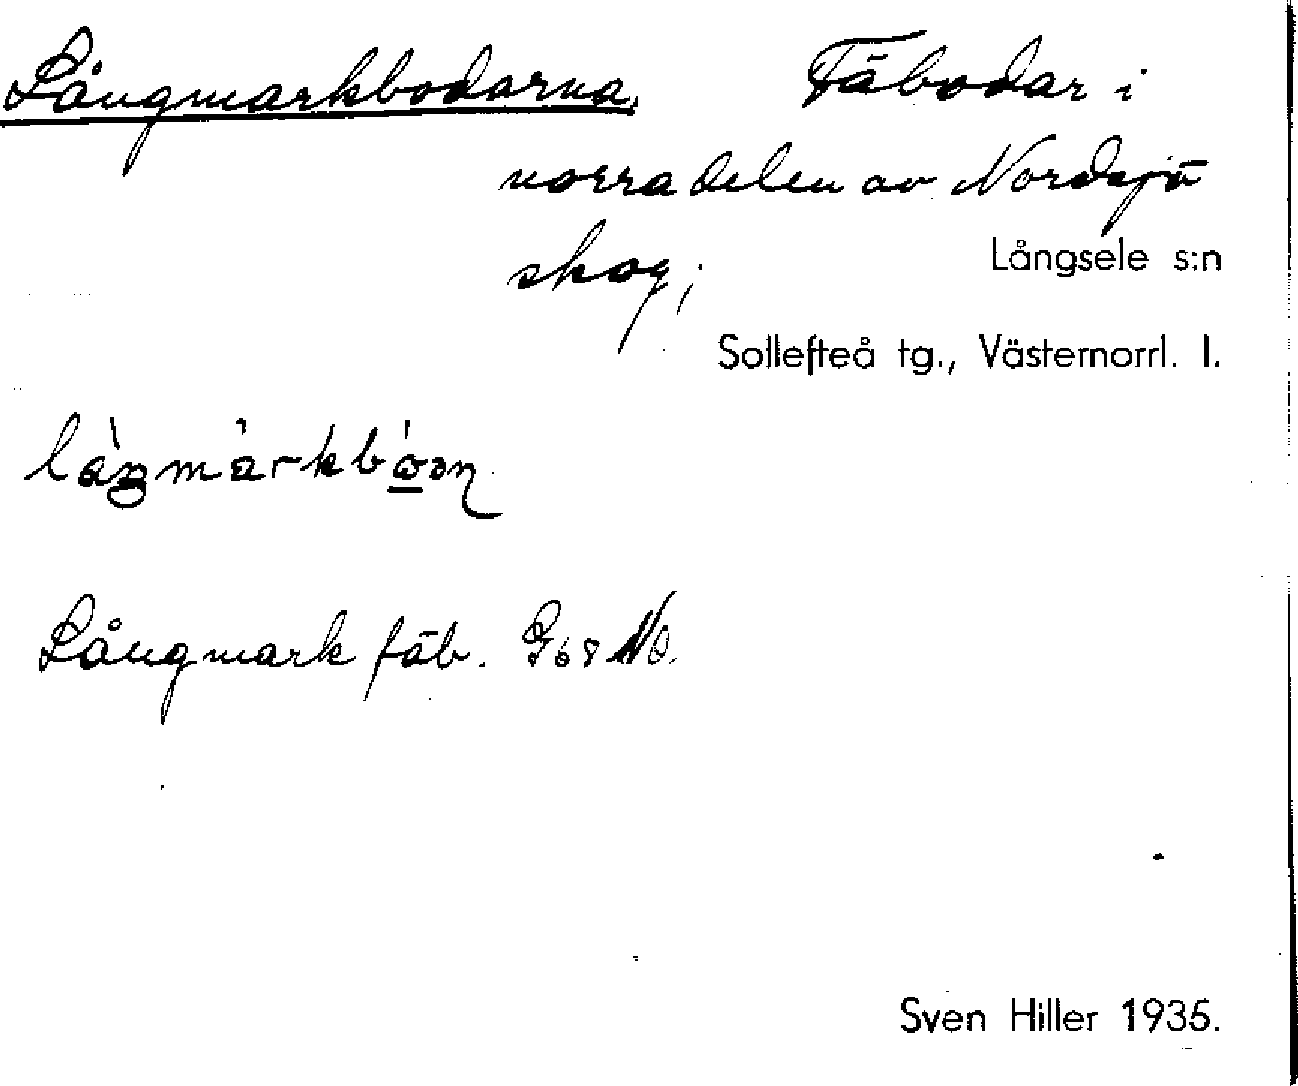 Långmarkbodarna, Fäbodar i
norra delen av Nordsjö
skog;
Långsele s:n
Sollefteå tg., Västernorrl. l.
Långmark fäb. G68 NO.
Sven Hiller 1935.